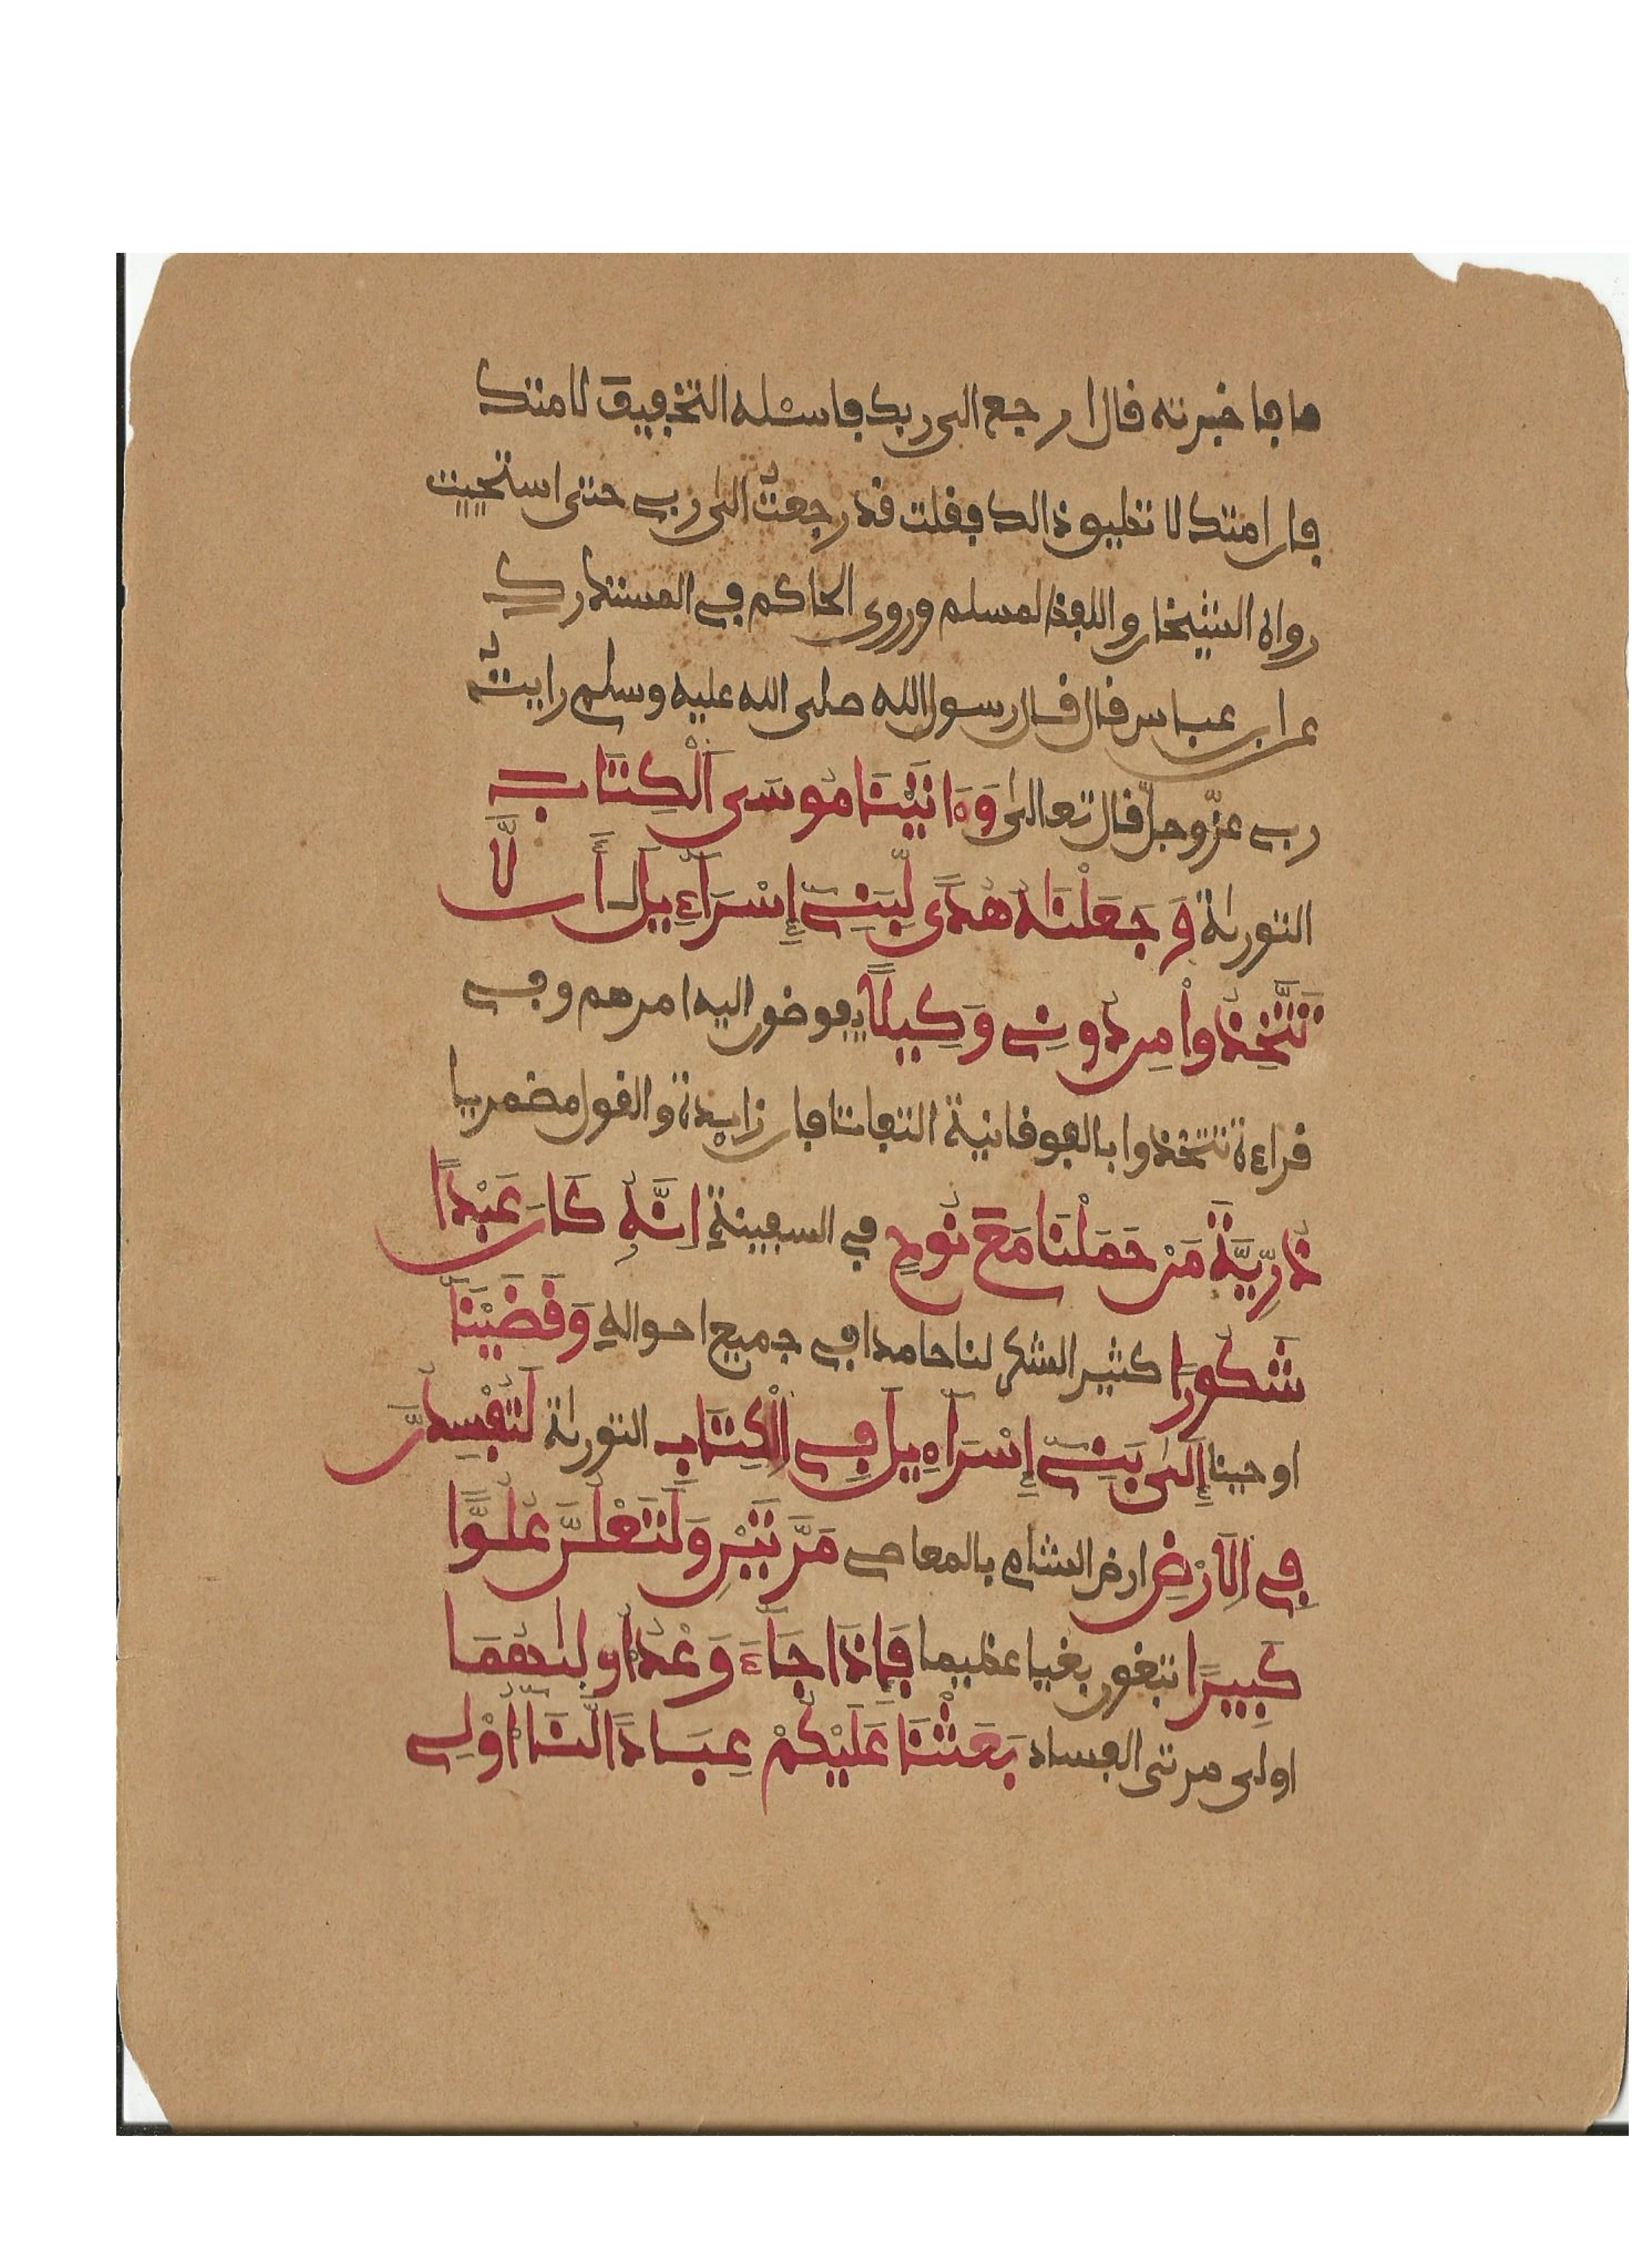 ما فاخبرته قال ارجع الى ربك فاسئله التخفيف لامتك
فان امتك لا تطيق ذالك فقلت قد رجعتُ الى ربي حتى استحييت
رواه الشيخان واللفظ لمسلم وروى الحاكم في المستدرك
عن ابن عباس قال قال رسول الله صلى الله عليه وسلم رايتُ
ربي عزّ وجلّ قال تعالى وَءَاتَيْنَا مُوسَى اَلْكِتَابَ
التورىة وَجَعَلْنَاهُ هُدًى لِّبَنِي إِسْرَآءِيلَ أَن لَّا
تَتَّخِذُواْ مِن دُونِي وَكِيلًا يفوضون اليه امرهم وفي
قراءة تتخذوا بالفوقانية التفاتا فان زايدة والقول مضمر يا
ذُرِّيَّةَ مَنْ حَمَلْنَا مَعَ نُوحٍ في السفينةِ اِنَّهُ كَانَ عَبْدًا
شَكُورًا كثير الشكر لنا حامدا في جميع احوالهِ وَقَضَيْنَآ
اوحينا إِلَىٰ بَنِي إِسْرَآءِيلَ فِي اِلْكِتَابِ التورىة لَتُفْسِدُنَّ
فِي اِلَارْضِ ارض الشام بالمعاصي مَرَّتَيْنِ وَلَتَعْلُنَّ عُلُوًّا
كَبِيرًا تبغون بغيا عظيما فَإِذَا جَآءَ وَعْدُ أُولَىٰهُمَا
اولى مرتي الفساد بَعَثْنَا عَلَيْكُمْ عِبَادًا لَّنَآ أُوْلِي